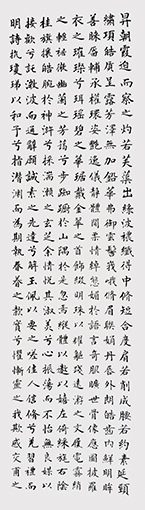 昇朝霞迫而察之灼若芙蕖出綠波襛纖得中脩短合度肩若削成腰若約素延頸
秀項皓質呈露芳澤無加鉛華弗御雲髻峩峩脩眉聯娟丹脣外朗皓齒內鮮明眸
善睞靨輔承權瓌姿艷逸儀靜體閑柔情綽態媚於語言奇服曠世骨像應圖披羅
衣之璀粲兮珥瑤碧之華琚戴金翠之首飾綴明珠以耀軀踐遠遊之文履曳霧綃
之輕裾微幽蘭之芳藹兮步踟躕於山隅於是忽焉縱體以遨以嬉左倚綵旄右蔭
桂旗攘皓腕於神滸兮采湍瀨之玄芝余情悅其淑美兮心振蕩而不怡無良媒以
接歡兮託微波而通辭願誠素之先達兮解玉佩以要之嗟佳人信脩兮羌習禮而
明詩抗瓊珶以和予兮指潛淵而為期執眷眷之款實兮懼斯靈之我欺感交甫之